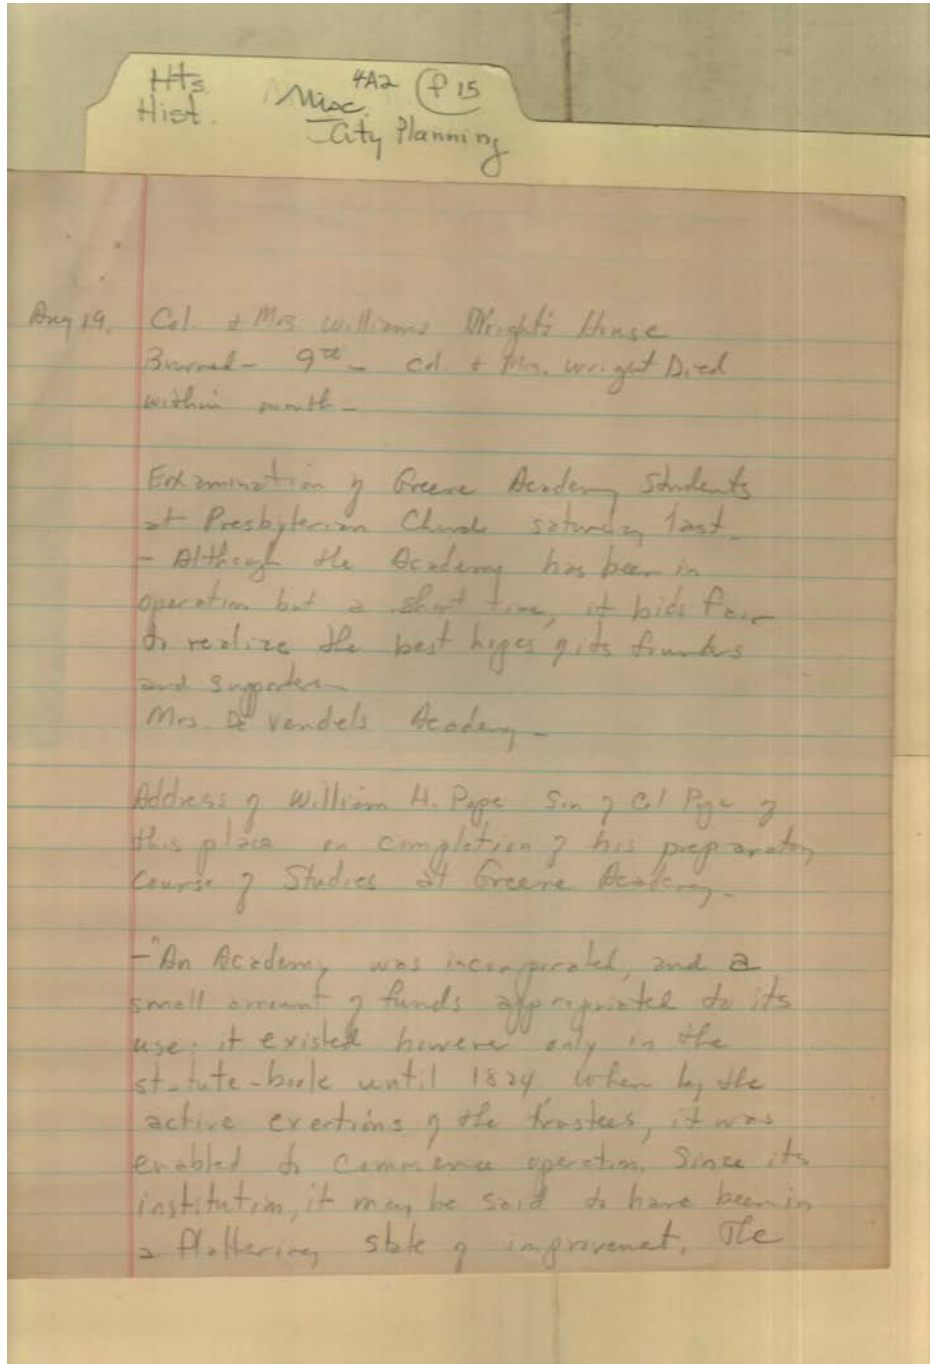 Hts. Hist.
4A2 f 15
Misc.
City Planning
Aug 19. Col. & Mrs. Williams Wright's House
Burned - 9th - Col. & Mrs. Wright Died
within month -
Examination of Greene Academy Students
at Presbyterian Church saturday last -
- Although the Academy has been in
operation but a short time, it bids fair
to realize the best hopes of its founders
and supporters
Mrs. De Vendels Academy -
Address of William H. Pope Son of Col Pope of
this place on completion of his preparatory
Course of Studies at Greene Academy -
- "An Academy was incorporated, and a
small amount of funds appropriated to its
use; it existed however only in the
statute-book until 1824 when by the
active exertions of the trustees, it was
enabled to commence operation. Since its
institution, it may be said to have been in
a flattering state of improvement. The